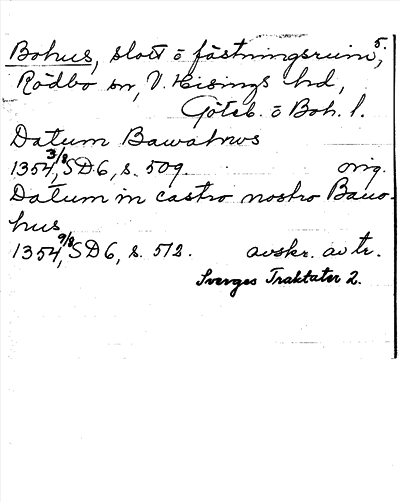 Bohus, slott o fästningsruin,
Rödbo sn, V. Hisings hd,
Göteb. o Boh. l.
Datum Bawahws
1354 3/8, SD 6, s. 509. orig.
Datum in castro nostro Bawo-
hus
1354 9/8, SD 6, s. 512. avskr. av tr.
Sverges Traktater 2.